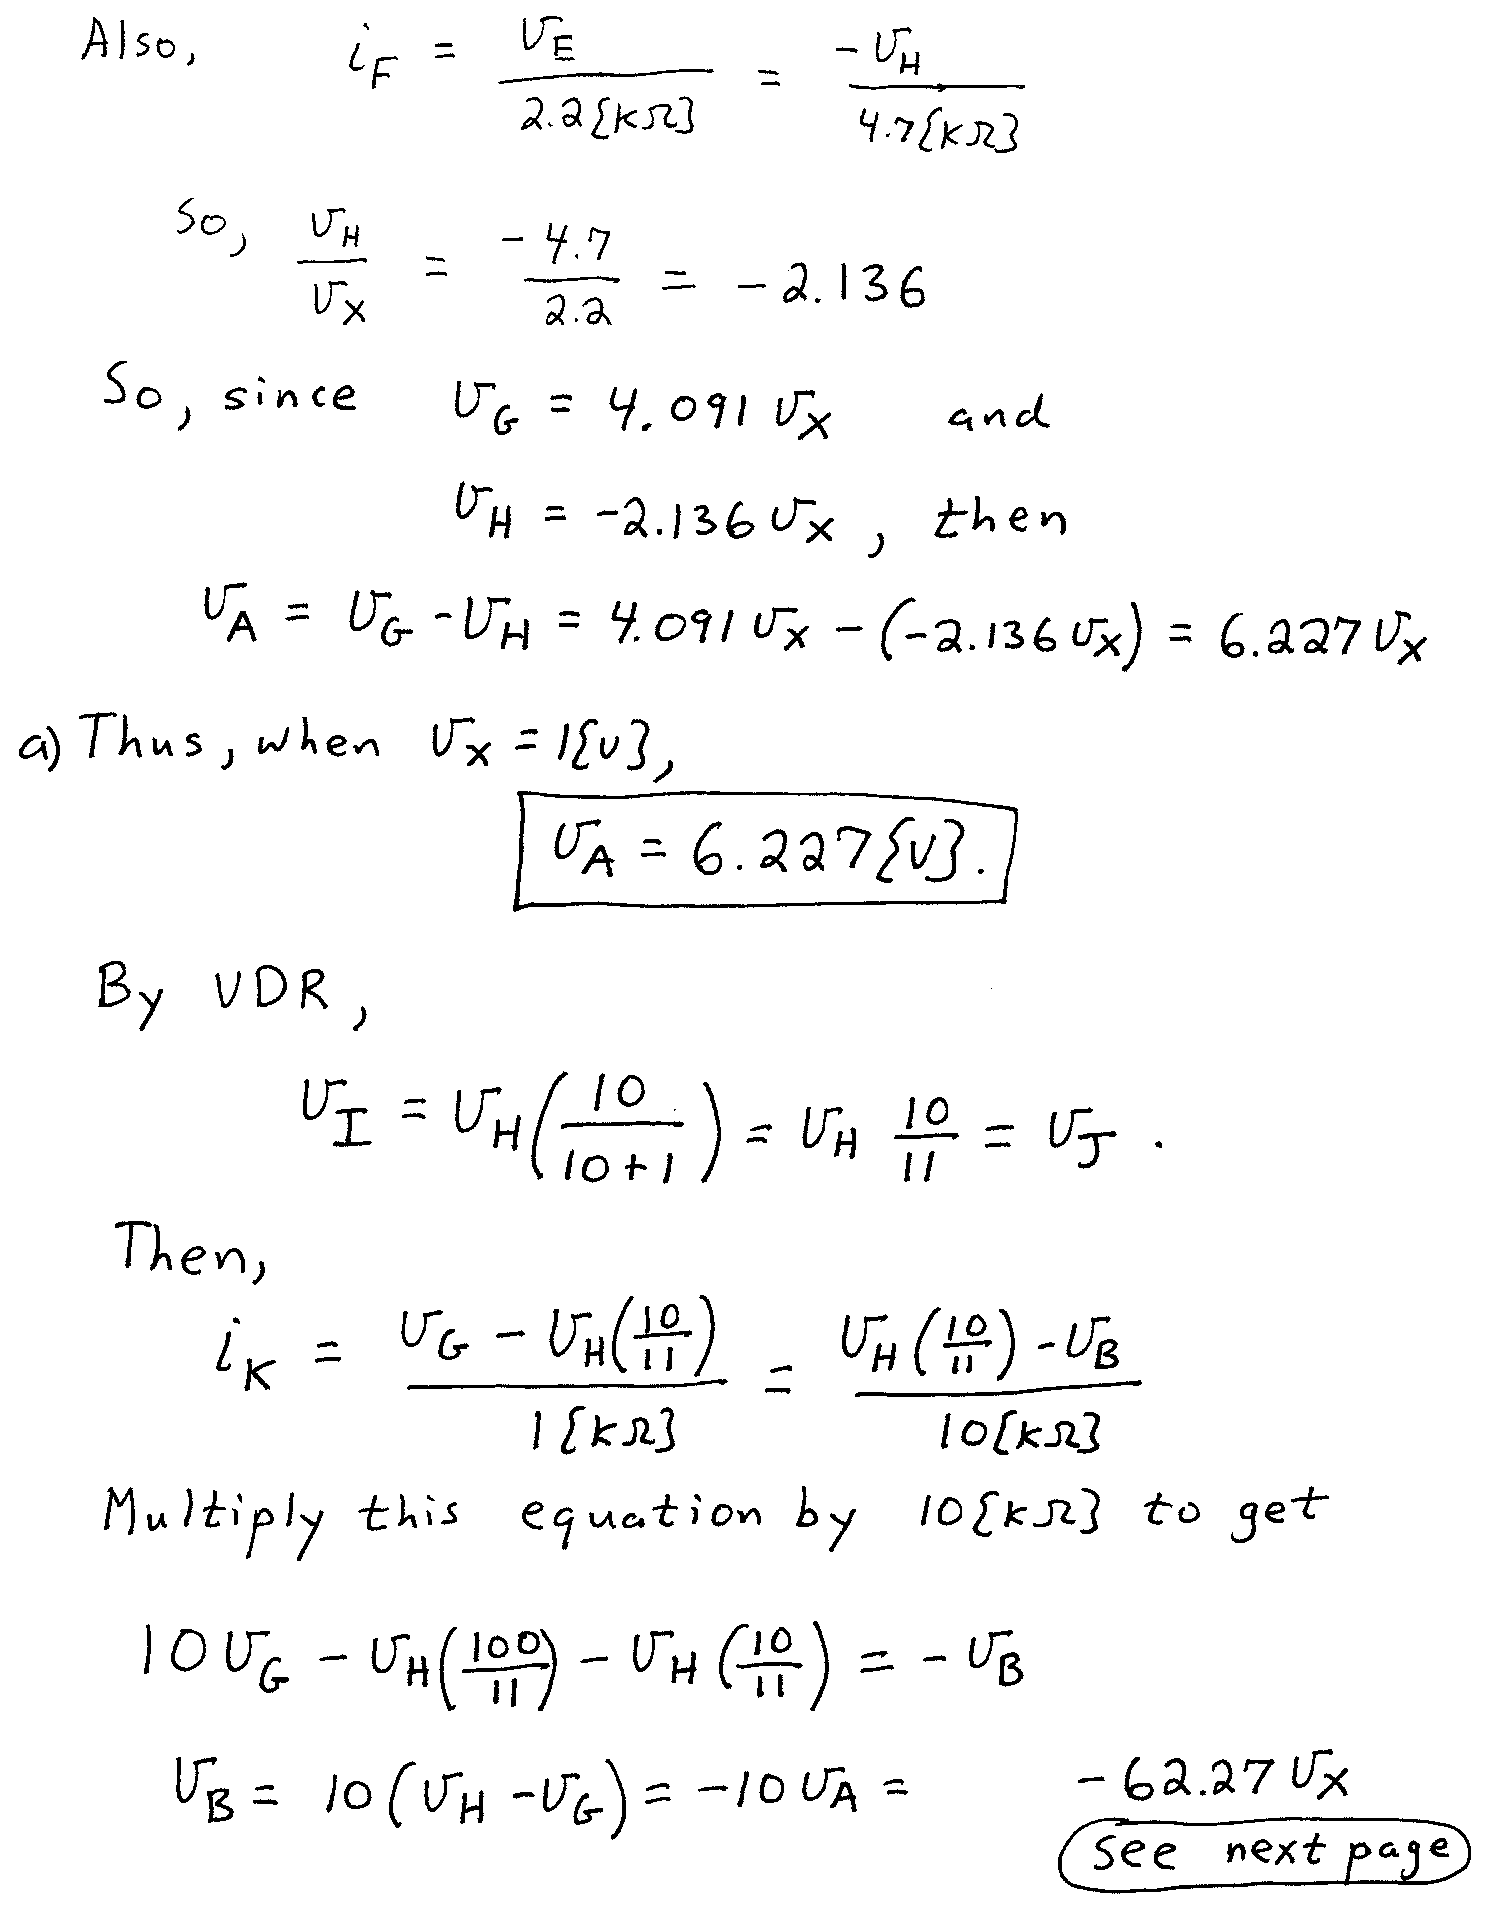 Also, i_F = v_E / 2.2{kΩ} = -v_H / 4.7{kΩ}
So, v_H / v_X = -4.7 / 2.2 = -2.136
So, since v_G = 4.091 v_X and
v_H = -2.136 v_X, then
v_A = v_G - v_H = 4.091 v_X - (-2.136 v_X) = 6.227 v_X
a) Thus, when v_X = 1{v},
v_A = 6.227{v}.
By VDR,
v_I = v_H (10 / 10+1) = v_H 10/11 = v_J.
Then,
i_K = v_G - v_H(10/11) / 1{kΩ} = v_H(10/11) - v_B / 10{kΩ}
Multiply this equation by 10{kΩ} to get
10 v_G - v_H(100/11) - v_H(10/11) = -v_B
v_B = 10(v_H - v_G) = -10 v_A = -62.27 v_X
see next page